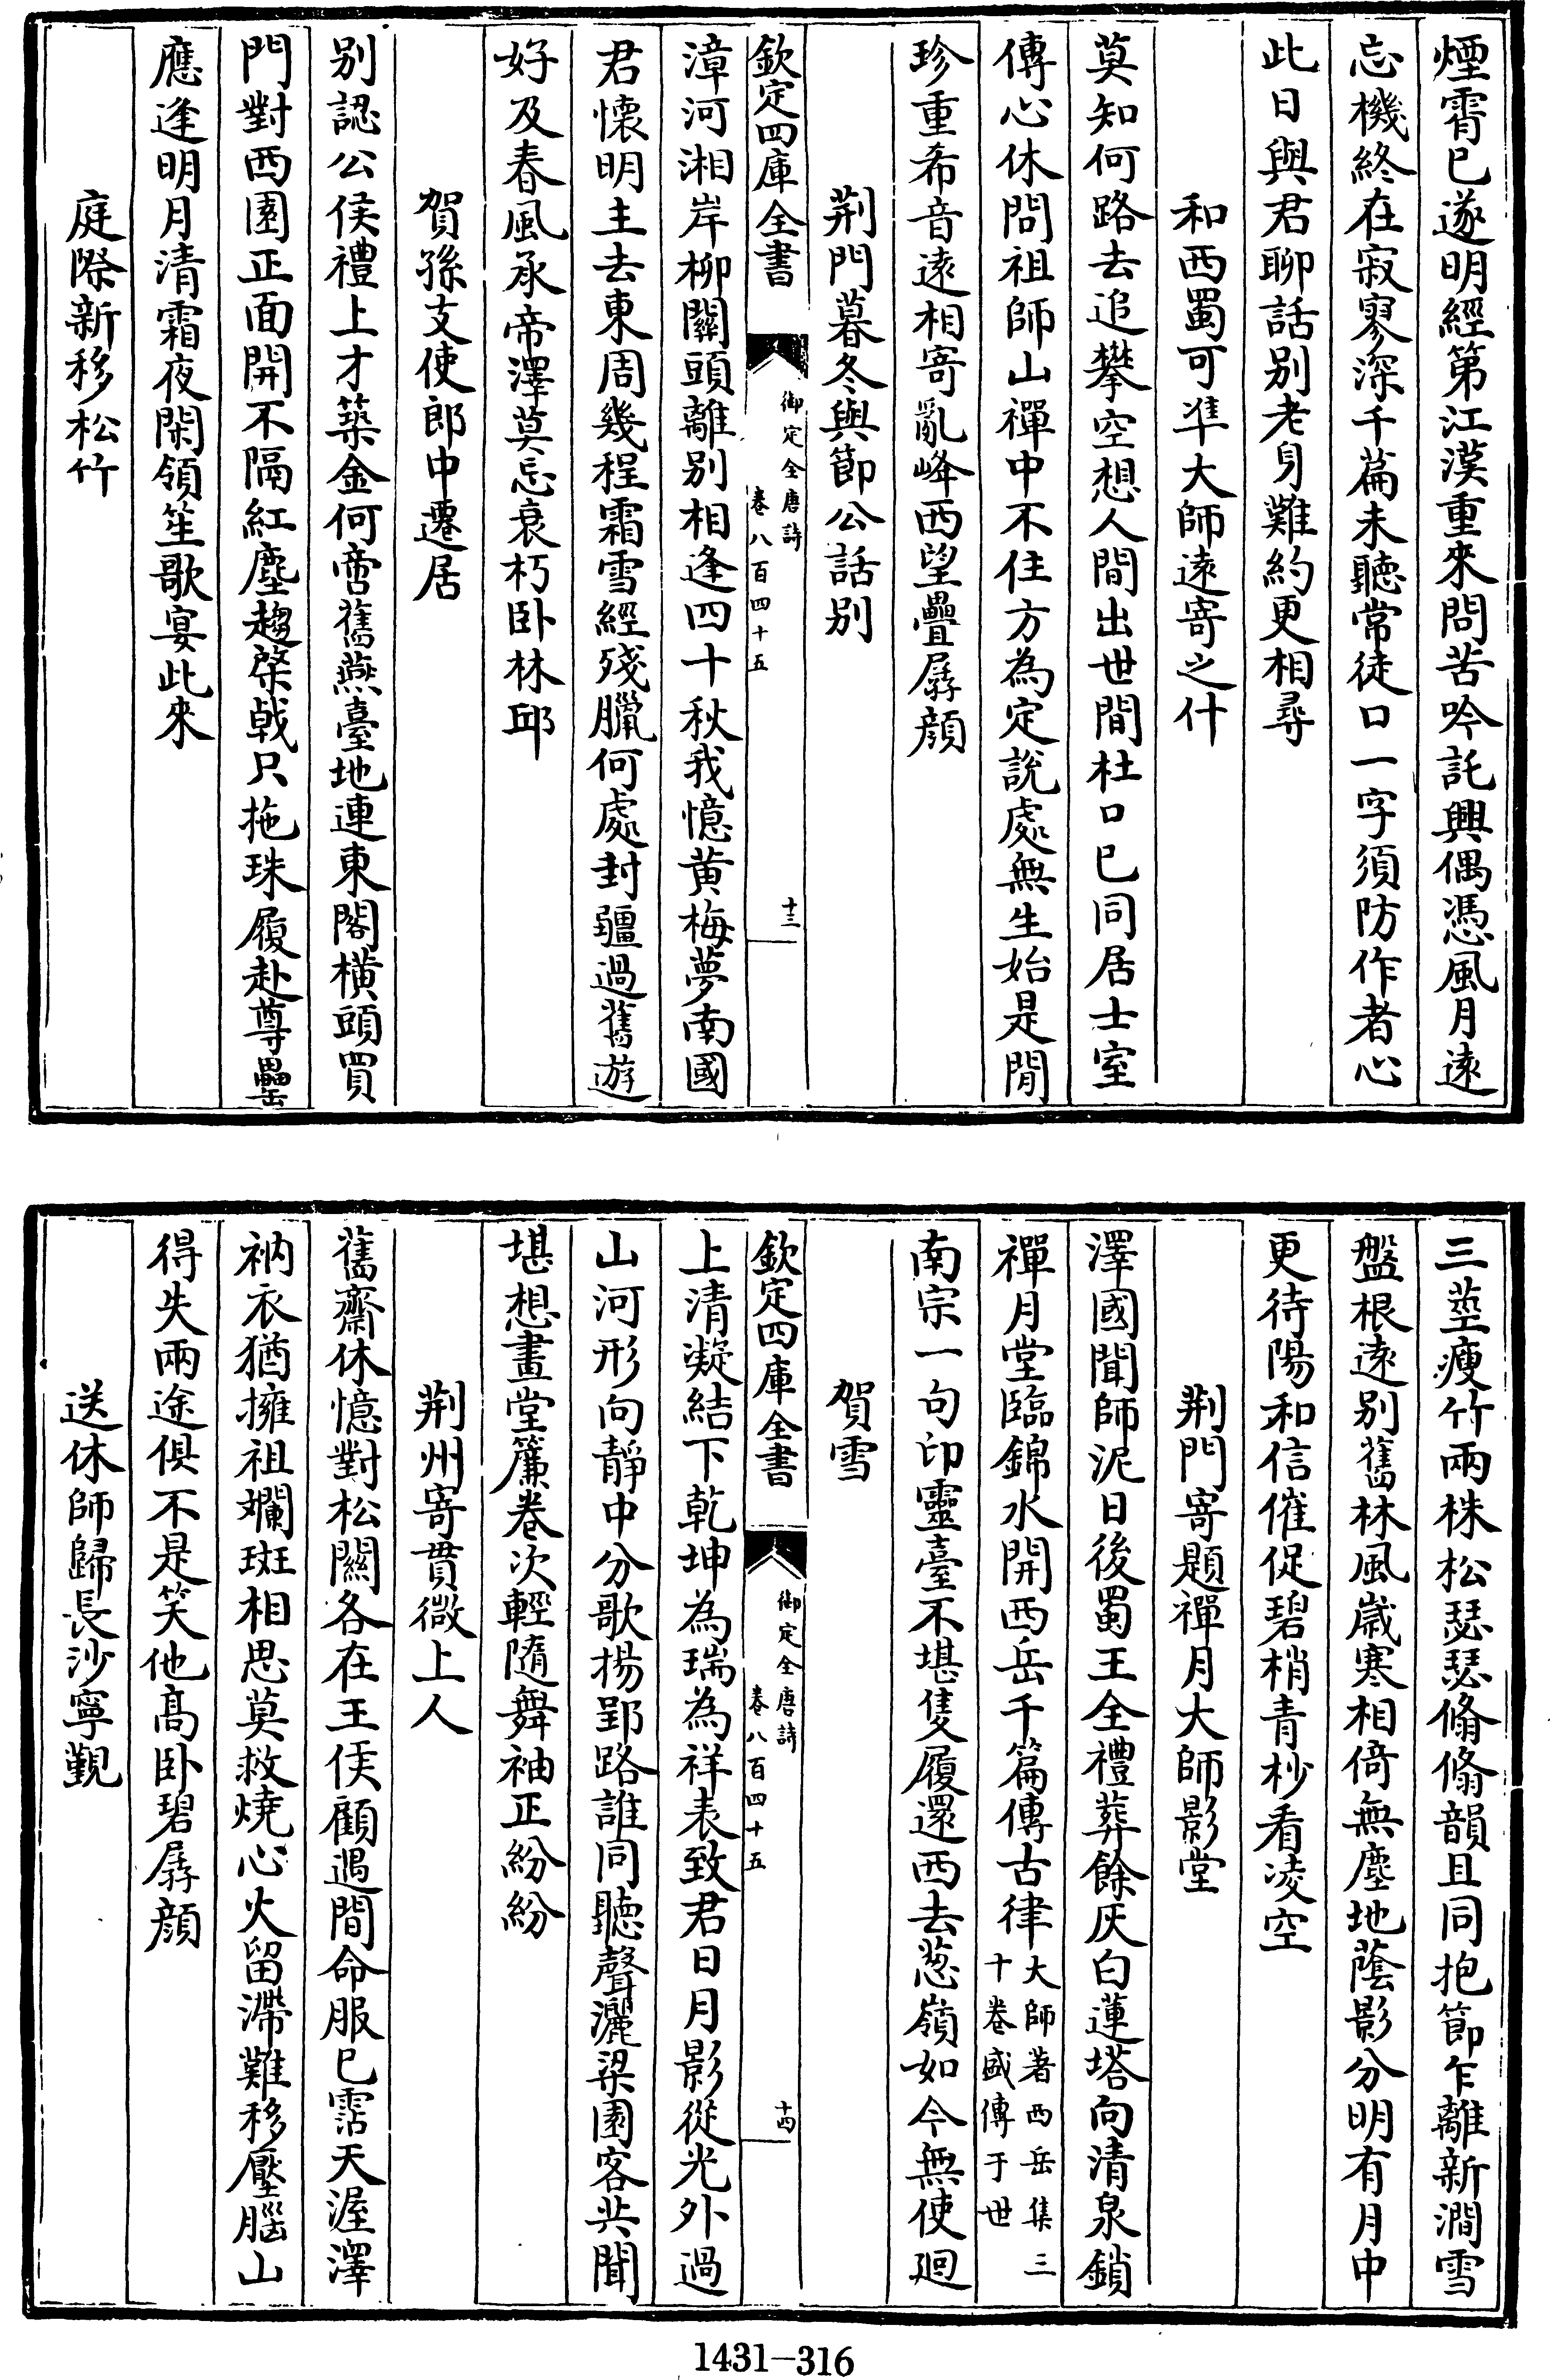 煙霄已遂明經第江漢重來問苦吟託興偶憑風月遠
忘機終在寂寥深千篇未聽常徒口一字須防作者心
此日與君聊話別老身難約更相尋
和西蜀可準大師遠寄之什
莫知何路去追攀空想人間出世間杜口已同居士室
傳心休問祖師山禪中不住方為定說處無生始是閒
珍重希音遠相寄亂峰西望疊孱顏
荆門暮冬與節公話別
欽定四庫全書
御定全唐詩
卷八百四十五
十三
漳河湘岸柳關頭離別相逢四十秋我憶黄梅夢南國
君懷明主去東周幾程霜雪經殘臘何處封疆過舊遊
好及春風承帝澤莫忘衰朽卧林邱
賀孫支使郎中遷居
別認公侯禮上才築金何啻舊燕臺地連東閣橫頭買
門對西園正面開不隔紅塵趨棨戟只拖珠履赴尊罍
應逢明月清霜夜閑領笙歌宴此來
庭際新移松竹
三莖瘦竹兩株松瑟瑟翛翛韻且同抱節乍離新澗雪
盤根遠別舊林風歲寒相倚無塵地蔭影分明有月中
更待陽和信催促碧梢青杪看凌空
荆門寄題禪月大師影堂
澤國聞師泥日後蜀王全禮葬餘灰白蓮塔向清泉鎖
禪月堂臨錦水開西岳千篇傳古律大師著西岳集三十卷盛傳于世
南宗一句印靈臺不堪隻履還西去葱嶺如今無使迴
賀雪
欽定四庫全書
御定全唐詩
卷八百四十五
十四
上清凝結下乾坤為瑞為祥表致君日月影從光外過
山河形向靜中分歌揚郢路誰同聽聲灑梁園客共聞
堪想畫堂簾卷次輕隨舞袖正紛紛
荆州寄貫微上人
舊齋休憶對松關各在王侯顧遇間命服已霑天渥澤
衲衣猶擁祖斕斑相思莫救燒心火留滯難移壓腦山
得失兩途俱不是笑他高卧碧孱顏
送休師歸長沙寧覲
1431—316